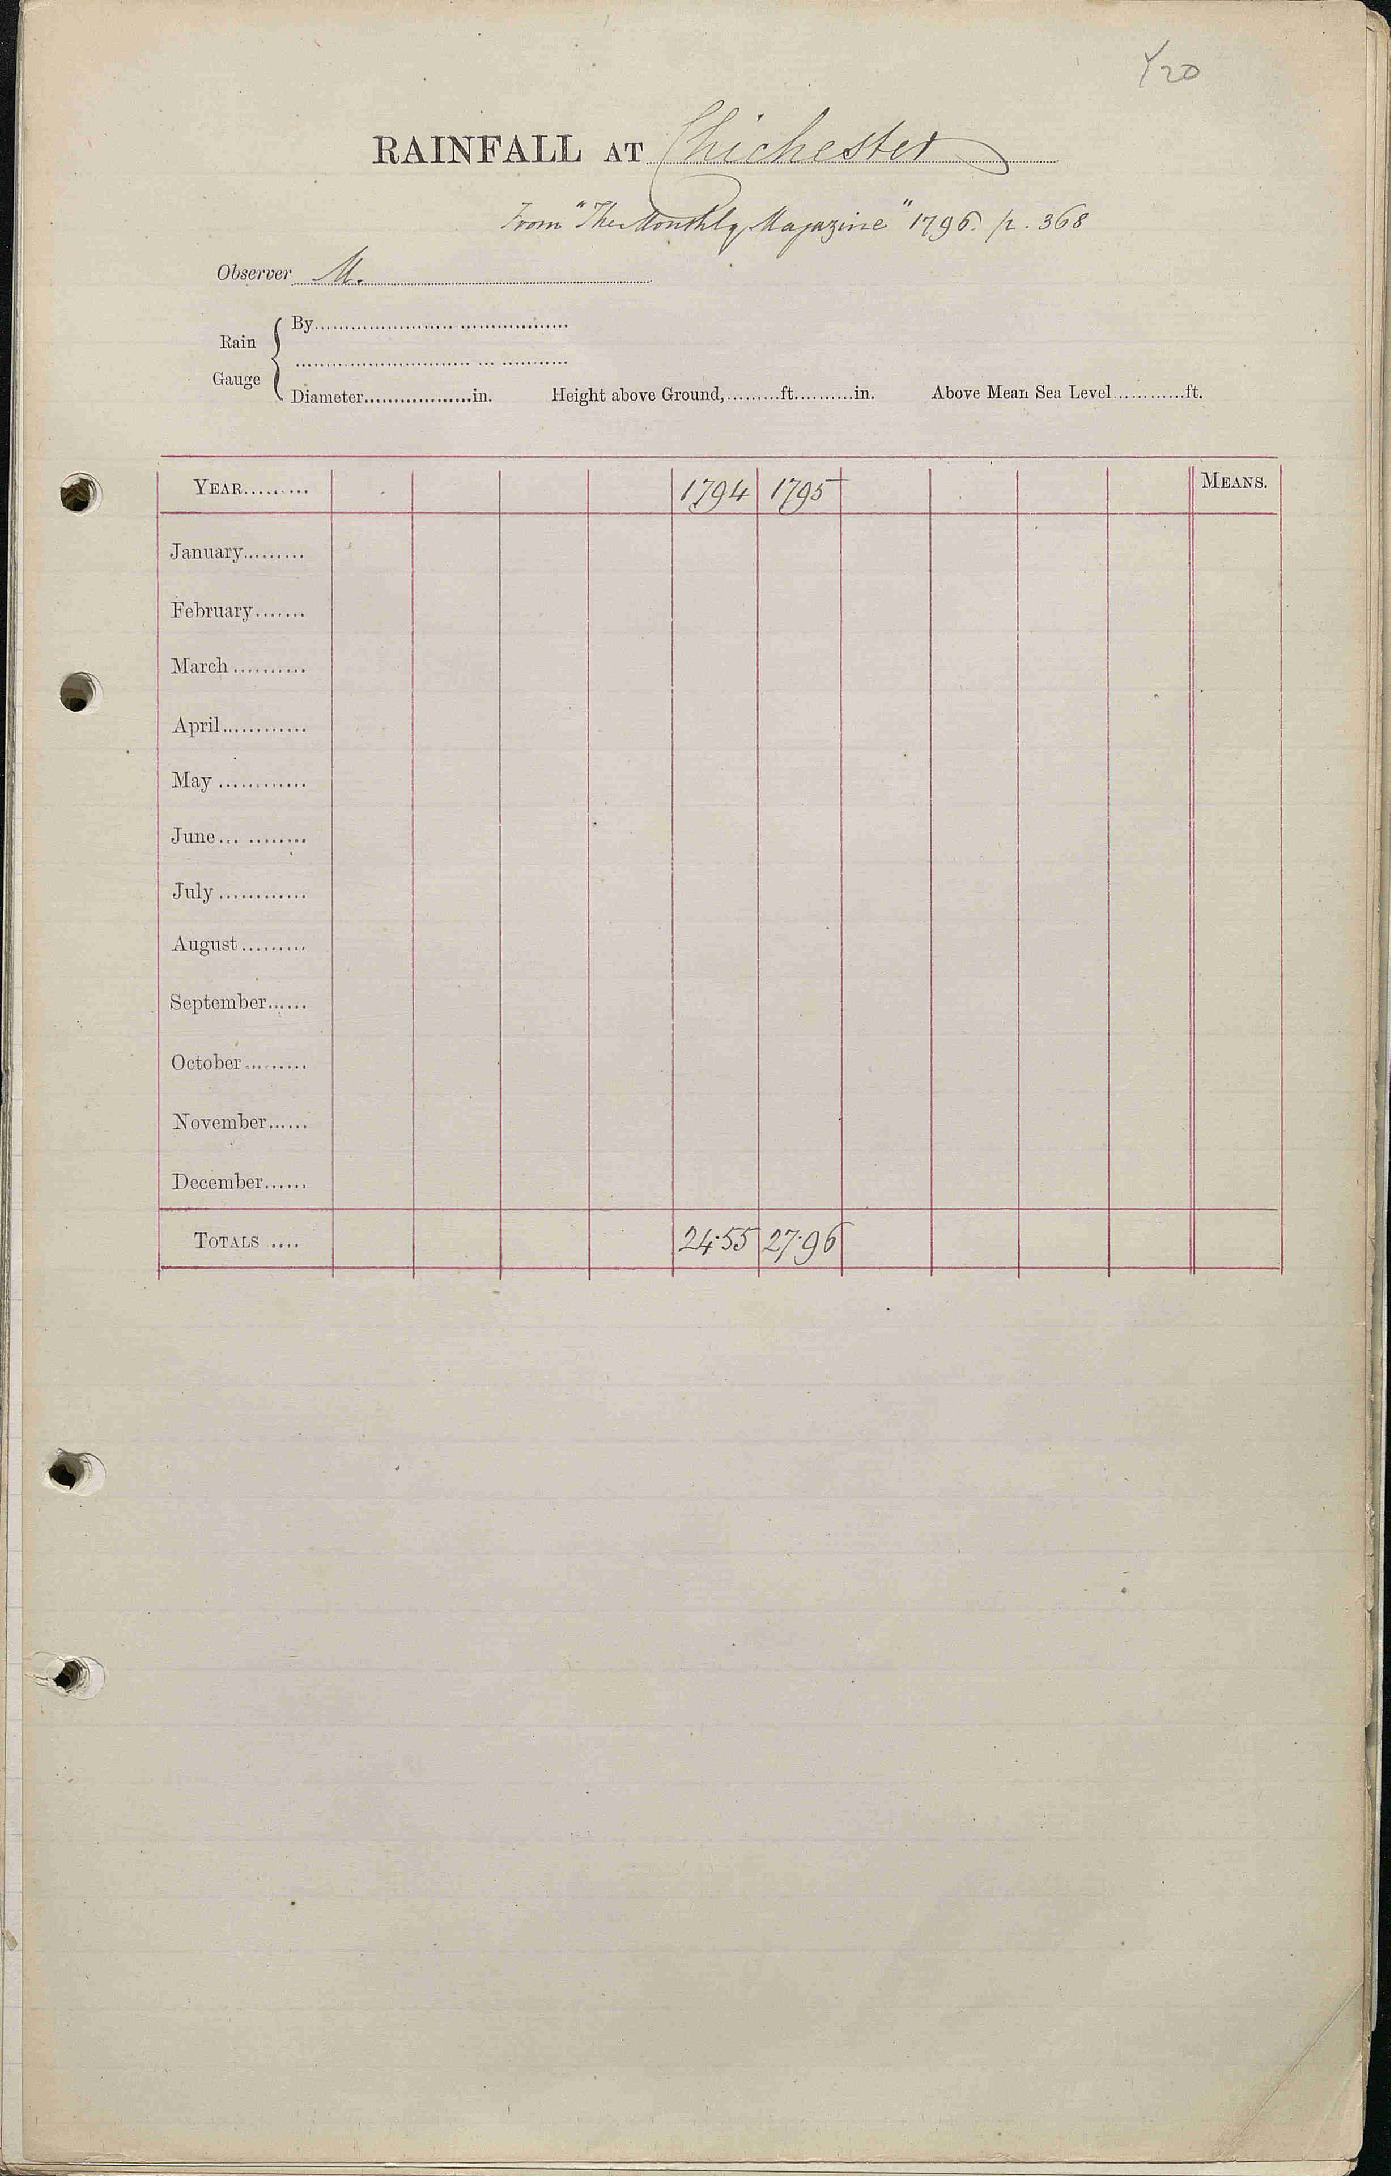 Y20
RAINFALL AT Chichester
From "The Monthly Magazine" 1796. p. 368
Observer M.
Rain Gauge
By
Diameter in. Height above Ground, ft. in. Above Mean Sea Level ft.
YEAR 1794 1795 MEANS.
January
February
March
April
May
June
July
August
September
October
November
December
TOTALS 24.55 27.96